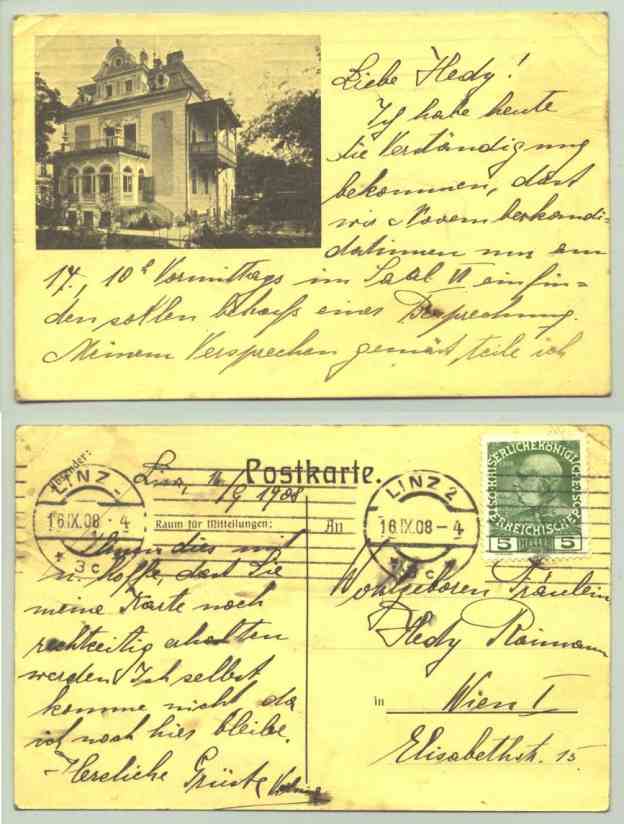 Liebe Hedy!
Ich habe heute
die Verständigung
bekommen, dass
wir Novemberkandi=
datinnen uns am
17., 10h Vormittags im Saal VI einfin=
den sollen behufs einer Besprechung.
Meinem Versprechen gemäss teile ich
Absender:
Postkarte.
Linz, 16/9 1908
LINZ 2
16.IX.08-4
* 3c *
LINZ 2
16.IX.08-4
* 3c *
KAISERLICHE KÖNIGLICHE
ÖSTERREICHISCHE
5 HELLER 5
Raum für Mitteilungen:
An
Ihnen dies mit
u. hoffe, dass Sie
meine Karte noch
rechtzeitig erhalten
werden. Ich selbst
komme nicht, da
ich noch hier bleibe.
Herzliche Grüsse
Wohlgeboren Fräulein
Hedy Raimann
in Wien I
Elisabethstr. 15.